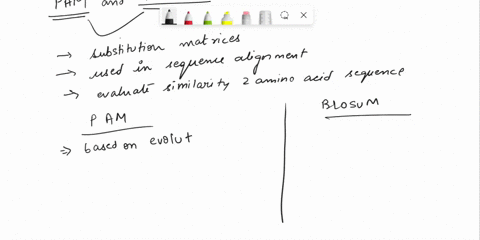 PAM and
→ substitution matrices
→ used in sequence alignment
→ evaluate similarity 2 amino acid sequence
PAM
BLOSUM
⇒ based on evolut